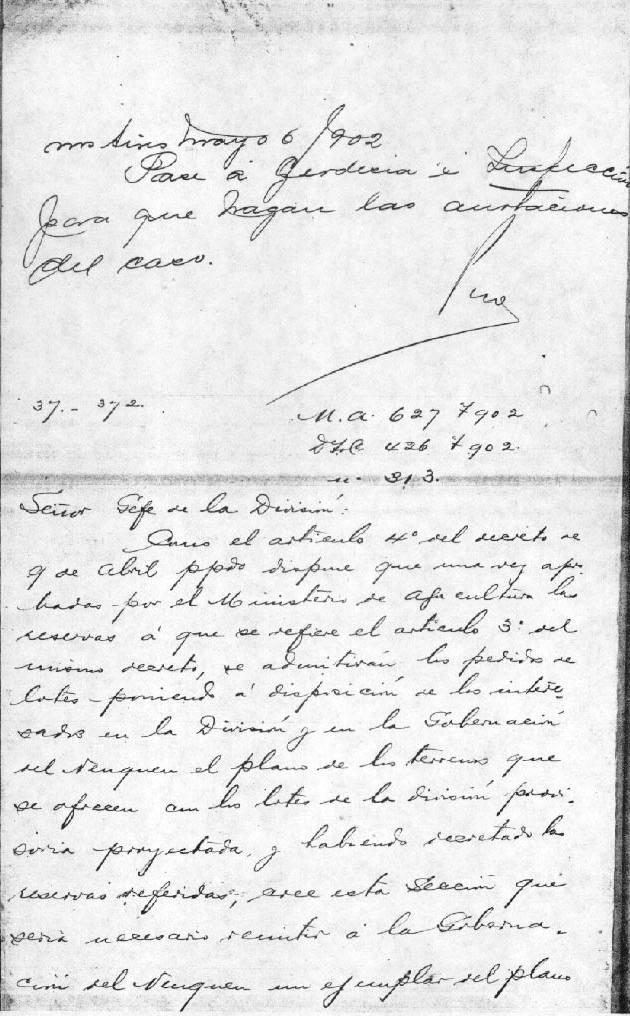 Aires Mayo 6/902
Pase á Geodesia é Inspección
para que hagan las anotaciones
del caso.
37.- 372.
M.A. 627 7902
426 7902.
n. 313.
Señor Gefe de la División:
Como el artículo 4º del decreto de
9 de Abril ppdo dispone que una vez apro
badas por el Ministerio de Agricultura las
reservas á que se refiere el artículo 3º del
mismo decreto, se admitirán los pedidos de
lotes poniendo á disposición de los intere-
sados en la División y en la Gobernación
del Neuquen el plano de los terrenos que
se ofrecen con los lotes de la división provi-
soria proyectada, y habiendo decretado las
reservas referidas, cree esta Sección que
seria necesario remitir á la Goberna-
ción del Neuquen un ejemplar del plano